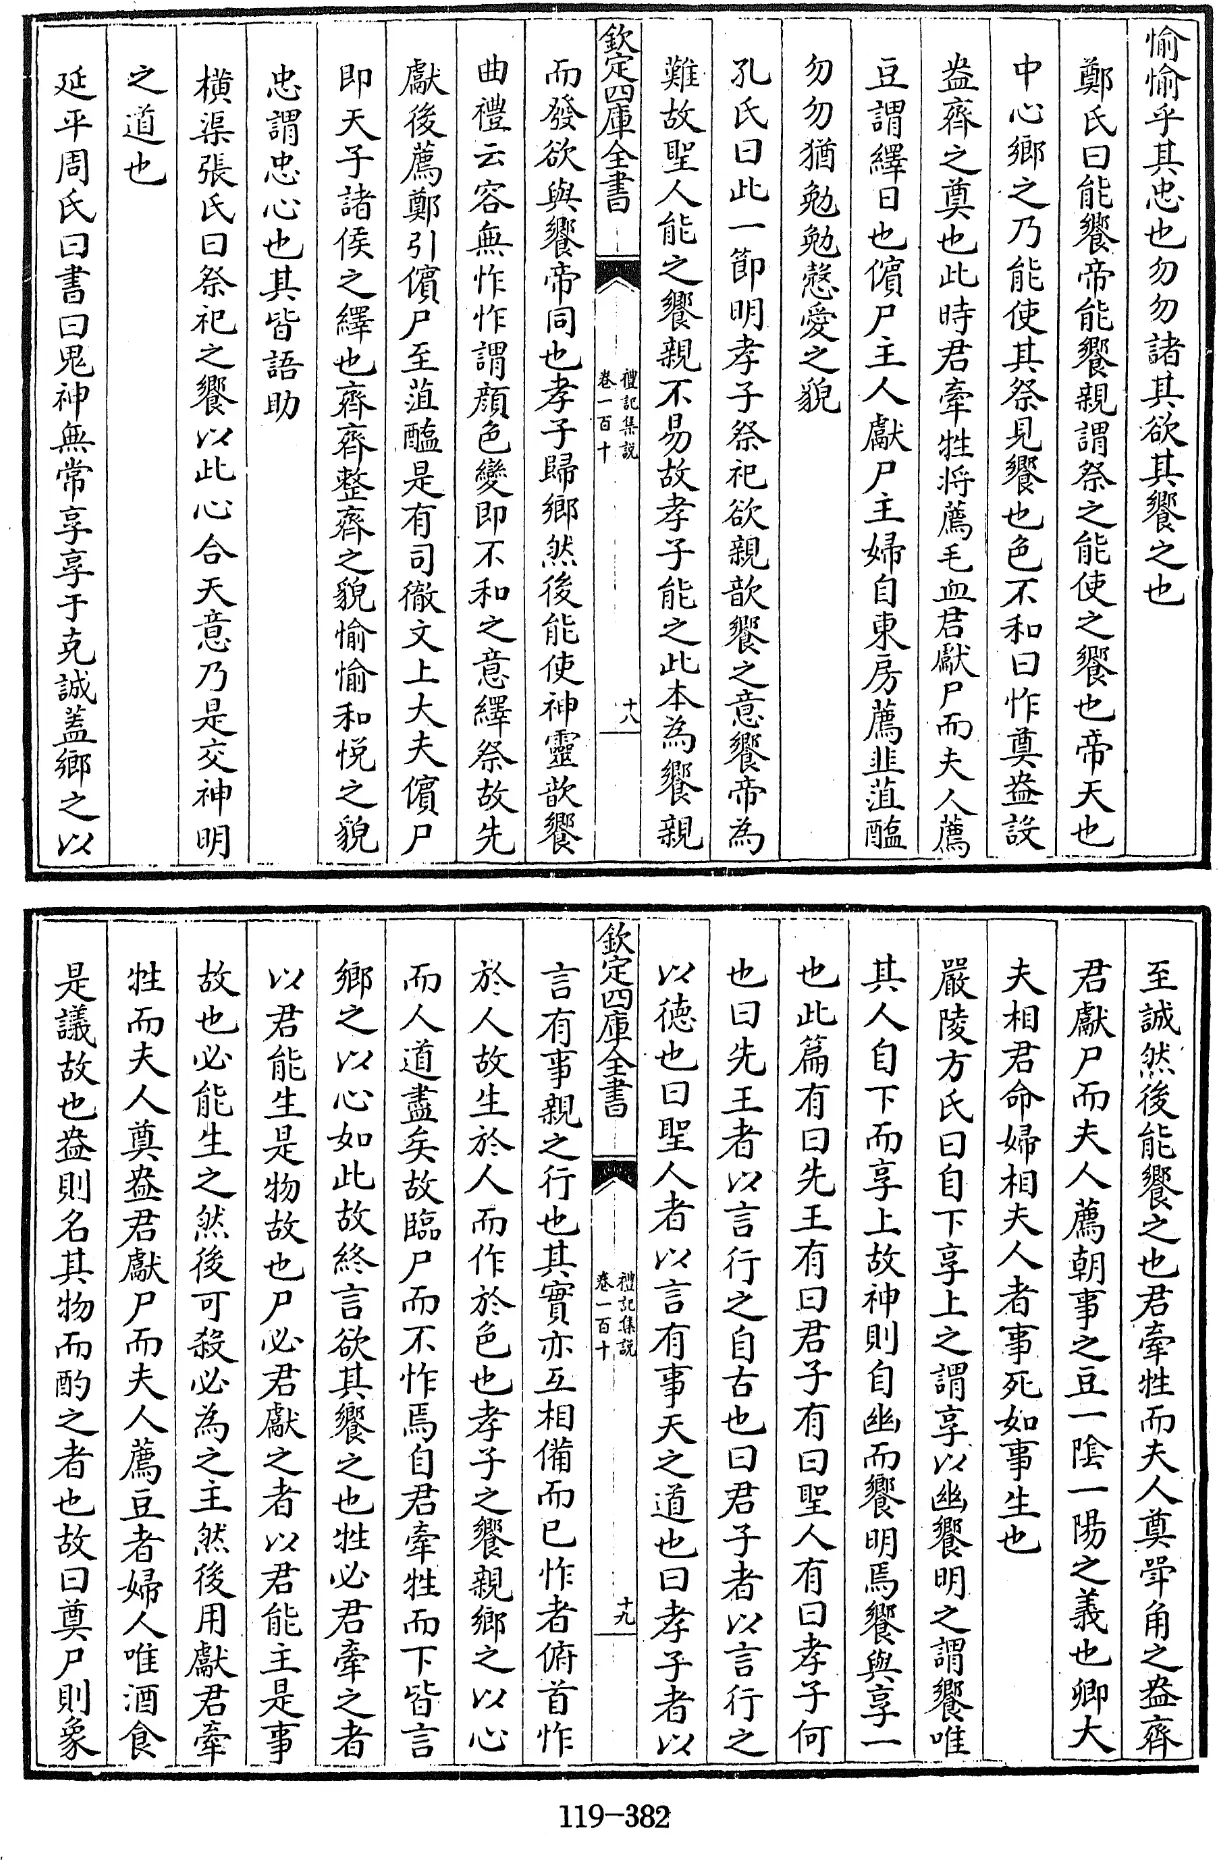 愉愉乎其忠也勿勿諸其欲其饗之也
鄭氏曰能饗帝能饗親謂祭之能使之饗也帝天也
中心鄉之乃能使其祭見饗也色不和曰怍奠盎設
盎齊之奠也此時君牽牲將薦毛血君獻尸而夫人薦
豆謂繹日也儐尸主人獻尸主婦自東房薦韭菹醢
勿勿猶勉勉慤愛之貌
孔氏曰此一節明孝子祭祀欲親歆饗之意饗帝為
難故聖人能之饗親不易故孝子能之此本為饗親
欽定四庫全書
禮記集說
卷一百十
十八
而發欲與饗帝同也孝子歸鄉然後能使神靈歆饗
曲禮云容無怍怍謂顏色變即不和之意繹祭故先
獻後薦鄭引儐尸至菹醢是有司徹文上大夫儐尸
即天子諸侯之繹也齊齊整齊之貌愉愉和悅之貌
忠謂忠心也其皆語助
橫渠張氏曰祭祀之饗以此心合天意乃是交神明
之道也
延平周氏曰書曰鬼神無常享享于克誠蓋鄉之以
至誠然後能饗之也君牽牲而夫人奠斝角之盎齊
君獻尸而夫人薦朝事之豆一陰一陽之義也卿大
夫相君命婦相夫人者事死如事生也
嚴陵方氏曰自下享上之謂享以幽饗明之謂饗唯
其人自下而享上故神則自幽而饗明焉饗與享一
也此篇有曰先王有曰君子有曰聖人有曰孝子何
也曰先王者以言行之自古也曰君子者以言行之
以德也曰聖人者以言有事天之道也曰孝子者以
欽定四庫全書
禮記集說
卷一百十
十九
言有事親之行也其實亦互相備而已怍者俯首怍
於人故生於人而作於色也孝子之饗親鄉之以心
而人道盡矣故臨尸而不怍焉自君牽牲而下皆言
鄉之以心如此故終言欲其饗之也牲必君牽之者
以君能生是物故也尸必君獻之者以君能主是事
故也必能生之然後可殺必為之主然後用獻君牽
牲而夫人奠盎君獻尸而夫人薦豆者婦人唯酒食
是議故也盎則名其物而酌之者也故曰奠尸則象
119-382